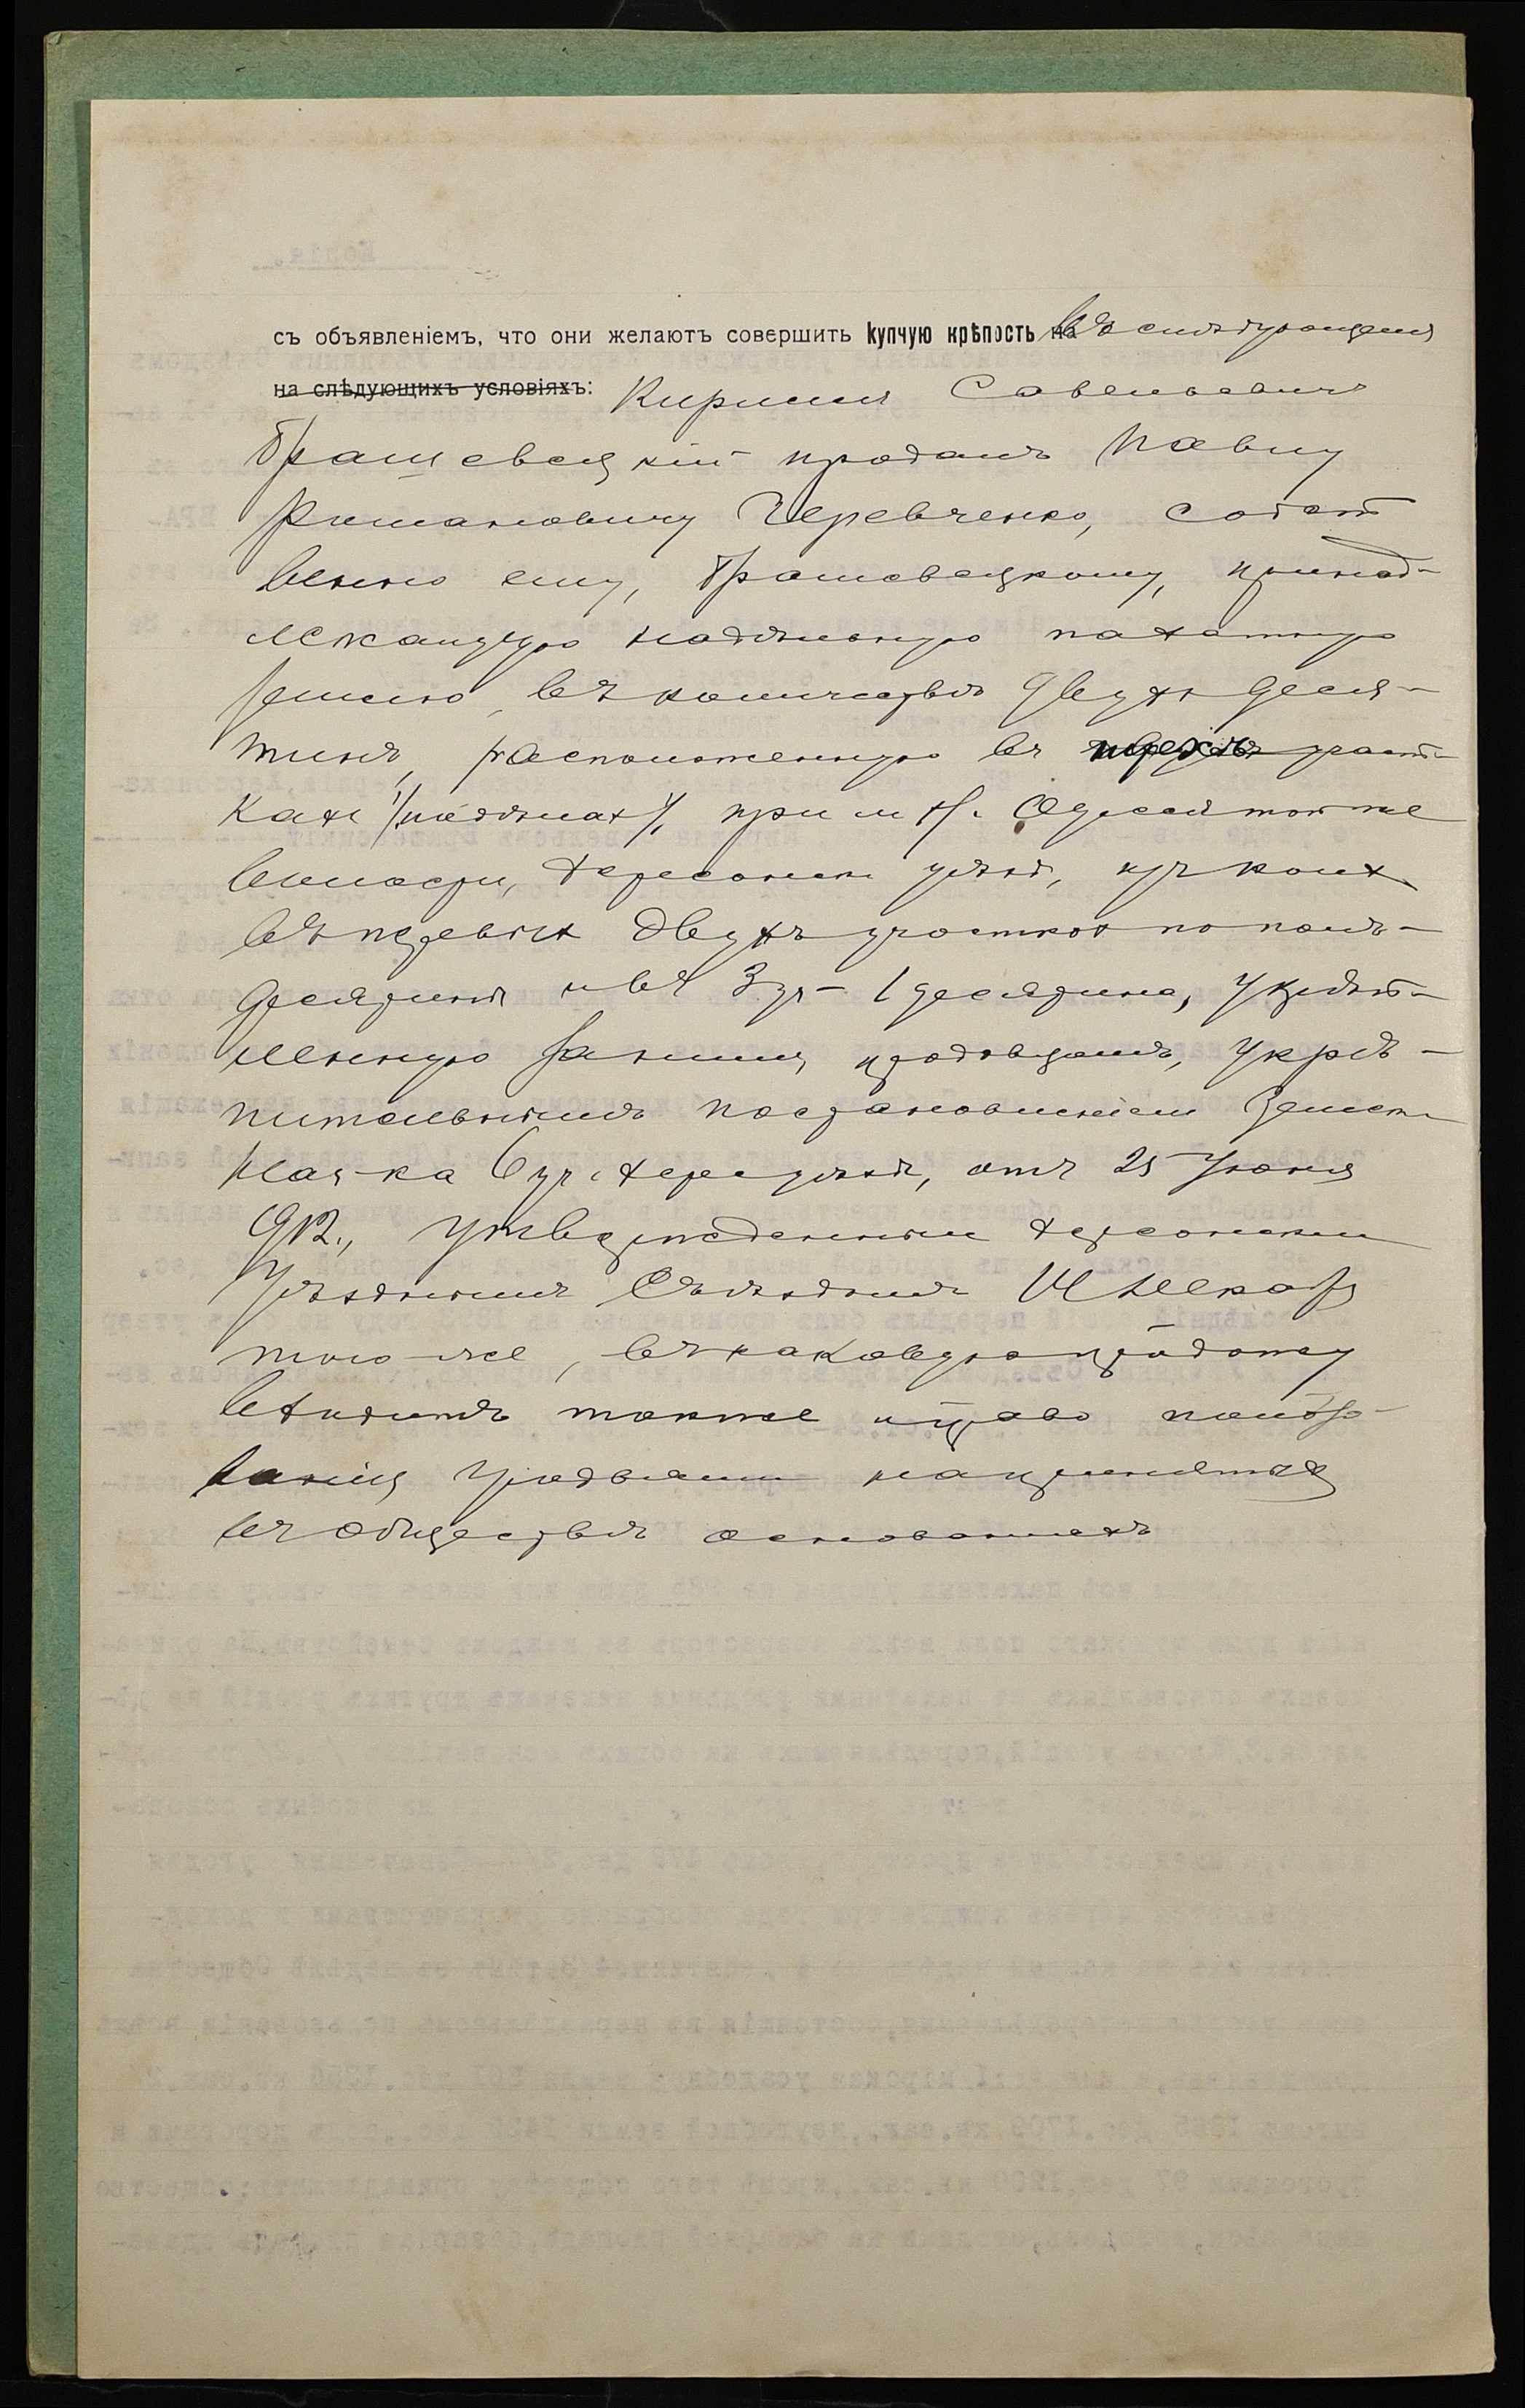 съ объявленіемъ, что они желаютъ совершить купчую крѣпость на въ слѣдующемъ
на слѣдующихъ условіяхъ: Кириллъ Савельевичъ
Брашевецкій продалъ Павлу
Романовичу Черевченко, собст
венно ему, Брашевецкому, принад-
лежащую надѣльную пахатную
землю, въ количествѣ двухъ деся-
тинъ, расположенную въ трехъ участ-
кахъ /надѣлахъ/, при той же
волости, Херсонск уѣзд, изъ коихъ
въ первыхъ двухъ участках по полъ-
десятины и въ 3 уч- 1 десятина, укрѣп-
ленную за нимъ, продавцомъ, укрѣ-
пительнымъ постановленіем Земск
Нач-ка 6 уч. Херс уѣзд, отъ 25 Іюня
912., утвержденным Херсонским
Уѣзднымъ Съѣздомъ
того же, въ каковую продажу
входитъ также право пользо-
ванія угодьями на принятых
въ обществѣ основаніяхъ